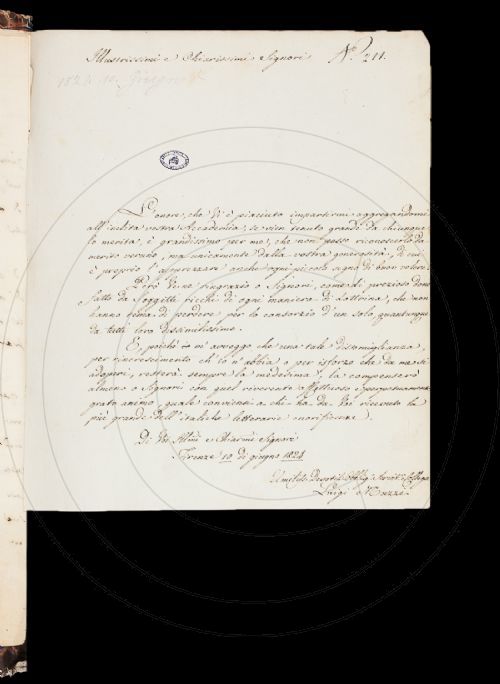 Illustrissimi e Chiarissimi Signori N.° 211.
1824. 10. Giugno
L'onore, che Vi è piaciuto impartirmi aggregandomi
all'inclita vostra Accademia, se vien tenuto grande da chiunque
lo merita, è grandissimo per me, che non posso riconoscerlo da
merito veruno, ma unicamente dalla vostra generosità, di cui
è proprio l'apprezzare anche ogni piccolo segno di buon volere.
Però Ve ne ringrazio o Signori, come di prezioso dono
fatto da Soggetti ricchi di ogni maniera di dottrina, che non
hanno tema di perdere per lo consorzio di un solo, quantunque
da tutti loro dissimilissimo.
E, poichè io m'avveggo che una tale dissomiglianza,
per rincrescimento ch'io n'abbia o per isforzo che da me si
adoperi, resterà sempre la medesima, la compenserò
almeno o Signori con quel riverente affettuoso e perpetuamente
grato animo, quale conviensi a chi ha da Voi ricevuto la
più grande dell'italiche letterarie onorificenze.
Di Voi Illmi e Chiarmi Signori
Firenze 10 di giugno 1824
Luigi